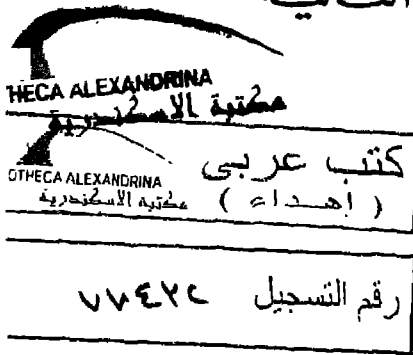 THECA ALEXANDRINA
مكتبة الاسكندرية
كتب عربى
OTHECA ALEXANDRINA
مكتبة الاسكندرية
( اهداء )
رقم التسجيل ٧٧٤٢٢